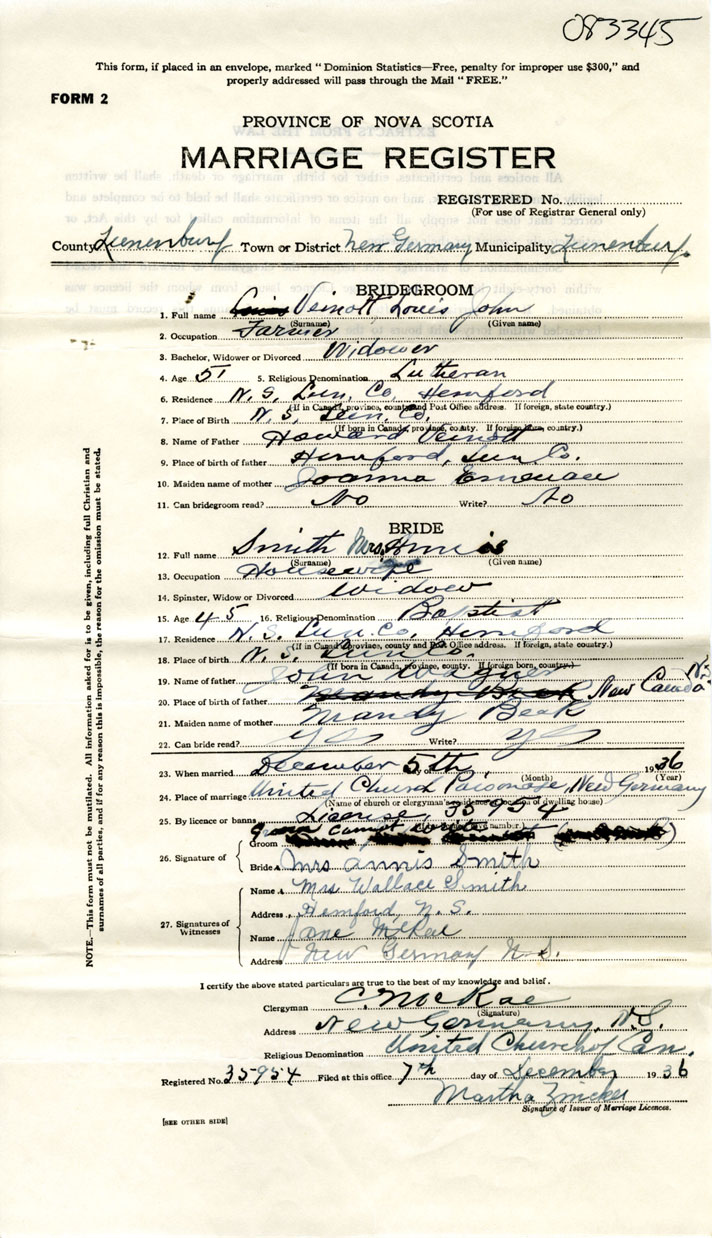 083345
This form, if placed in an envelope, marked " Dominion Statistics—Free, penalty for improper use $300," and
properly addressed will pass through the Mail " FREE."
FORM 2
PROVINCE OF NOVA SCOTIA
MARRIAGE REGISTER
REGISTERED No.
(For use of Registrar General only)
County Lunenburg Town or District New Germany Municipality Lunenburg.
BRIDEGROOM
1. Full name Veinott Louis John
(Surname) (Given name)
2. Occupation Farmer
3. Bachelor, Widower or Divorced Widower
4. Age 51 5. Religious Denomination Lutheran
6. Residence N. S. Lun. Co. Hemford
(If in Canada, province, county and Post Office address. If foreign, state country.)
7. Place of Birth N. S. Lun. Co.
(If born in Canada, province, county. If foreign born, country.)
8. Name of Father Howard Veinott
9. Place of birth of father Hemford, Lun Co.
10. Maiden name of mother Joanna
11. Can bridegroom read? No Write? No
BRIDE
12. Full name Smith Mrs. Annis
(Surname) (Given name)
13. Occupation Housewife
14. Spinster, Widow or Divorced Widow
15. Age 45 16. Religious Denomination Baptist
17. Residence N. S. Lun. Co. Hemford
(If in Canada, province, county and Post Office address. If foreign, state country.)
18. Place of birth N. S. Lun. Co.
(If born in Canada, province, county. If foreign born, country.)
19. Name of father John Wagner
20. Place of birth of father Mandy Beak New Canada N.S.
21. Maiden name of mother Mandy Beak
22. Can bride read? yes Write? yes
23. When married December 5th, day of 1936
(Month) (Year)
24. Place of marriage United Church Parsonage, New Germany
(Name of church or clergyman's residence or location of dwelling house)
25. By licence or banns License, 35954
Groom cannot write
Groom
26. Signature of
Bride Mrs Annis Smith
Name Mrs Wallace Smith
Address Hemford, N. S.
27. Signatures of Witnesses
Name Jane McRae
Address New Germany N.S.
I certify the above stated particulars are true to the best of my knowledge and belief.
Clergyman C. McRae
(Signature)
Address New Germany, N.S.
Religious Denomination United Church of Can.
Registered No. 35954 Filed at this office 7th day of December 1936
Martha Zincker
Signature of Issuer of Marriage Licences.
[SEE OTHER SIDE]
NOTE.—This form must not be mutilated. All information asked for is to be given, including full Christian and
surnames of all parties, and if for any reason this is impossible, the reason for the omission must be stated.